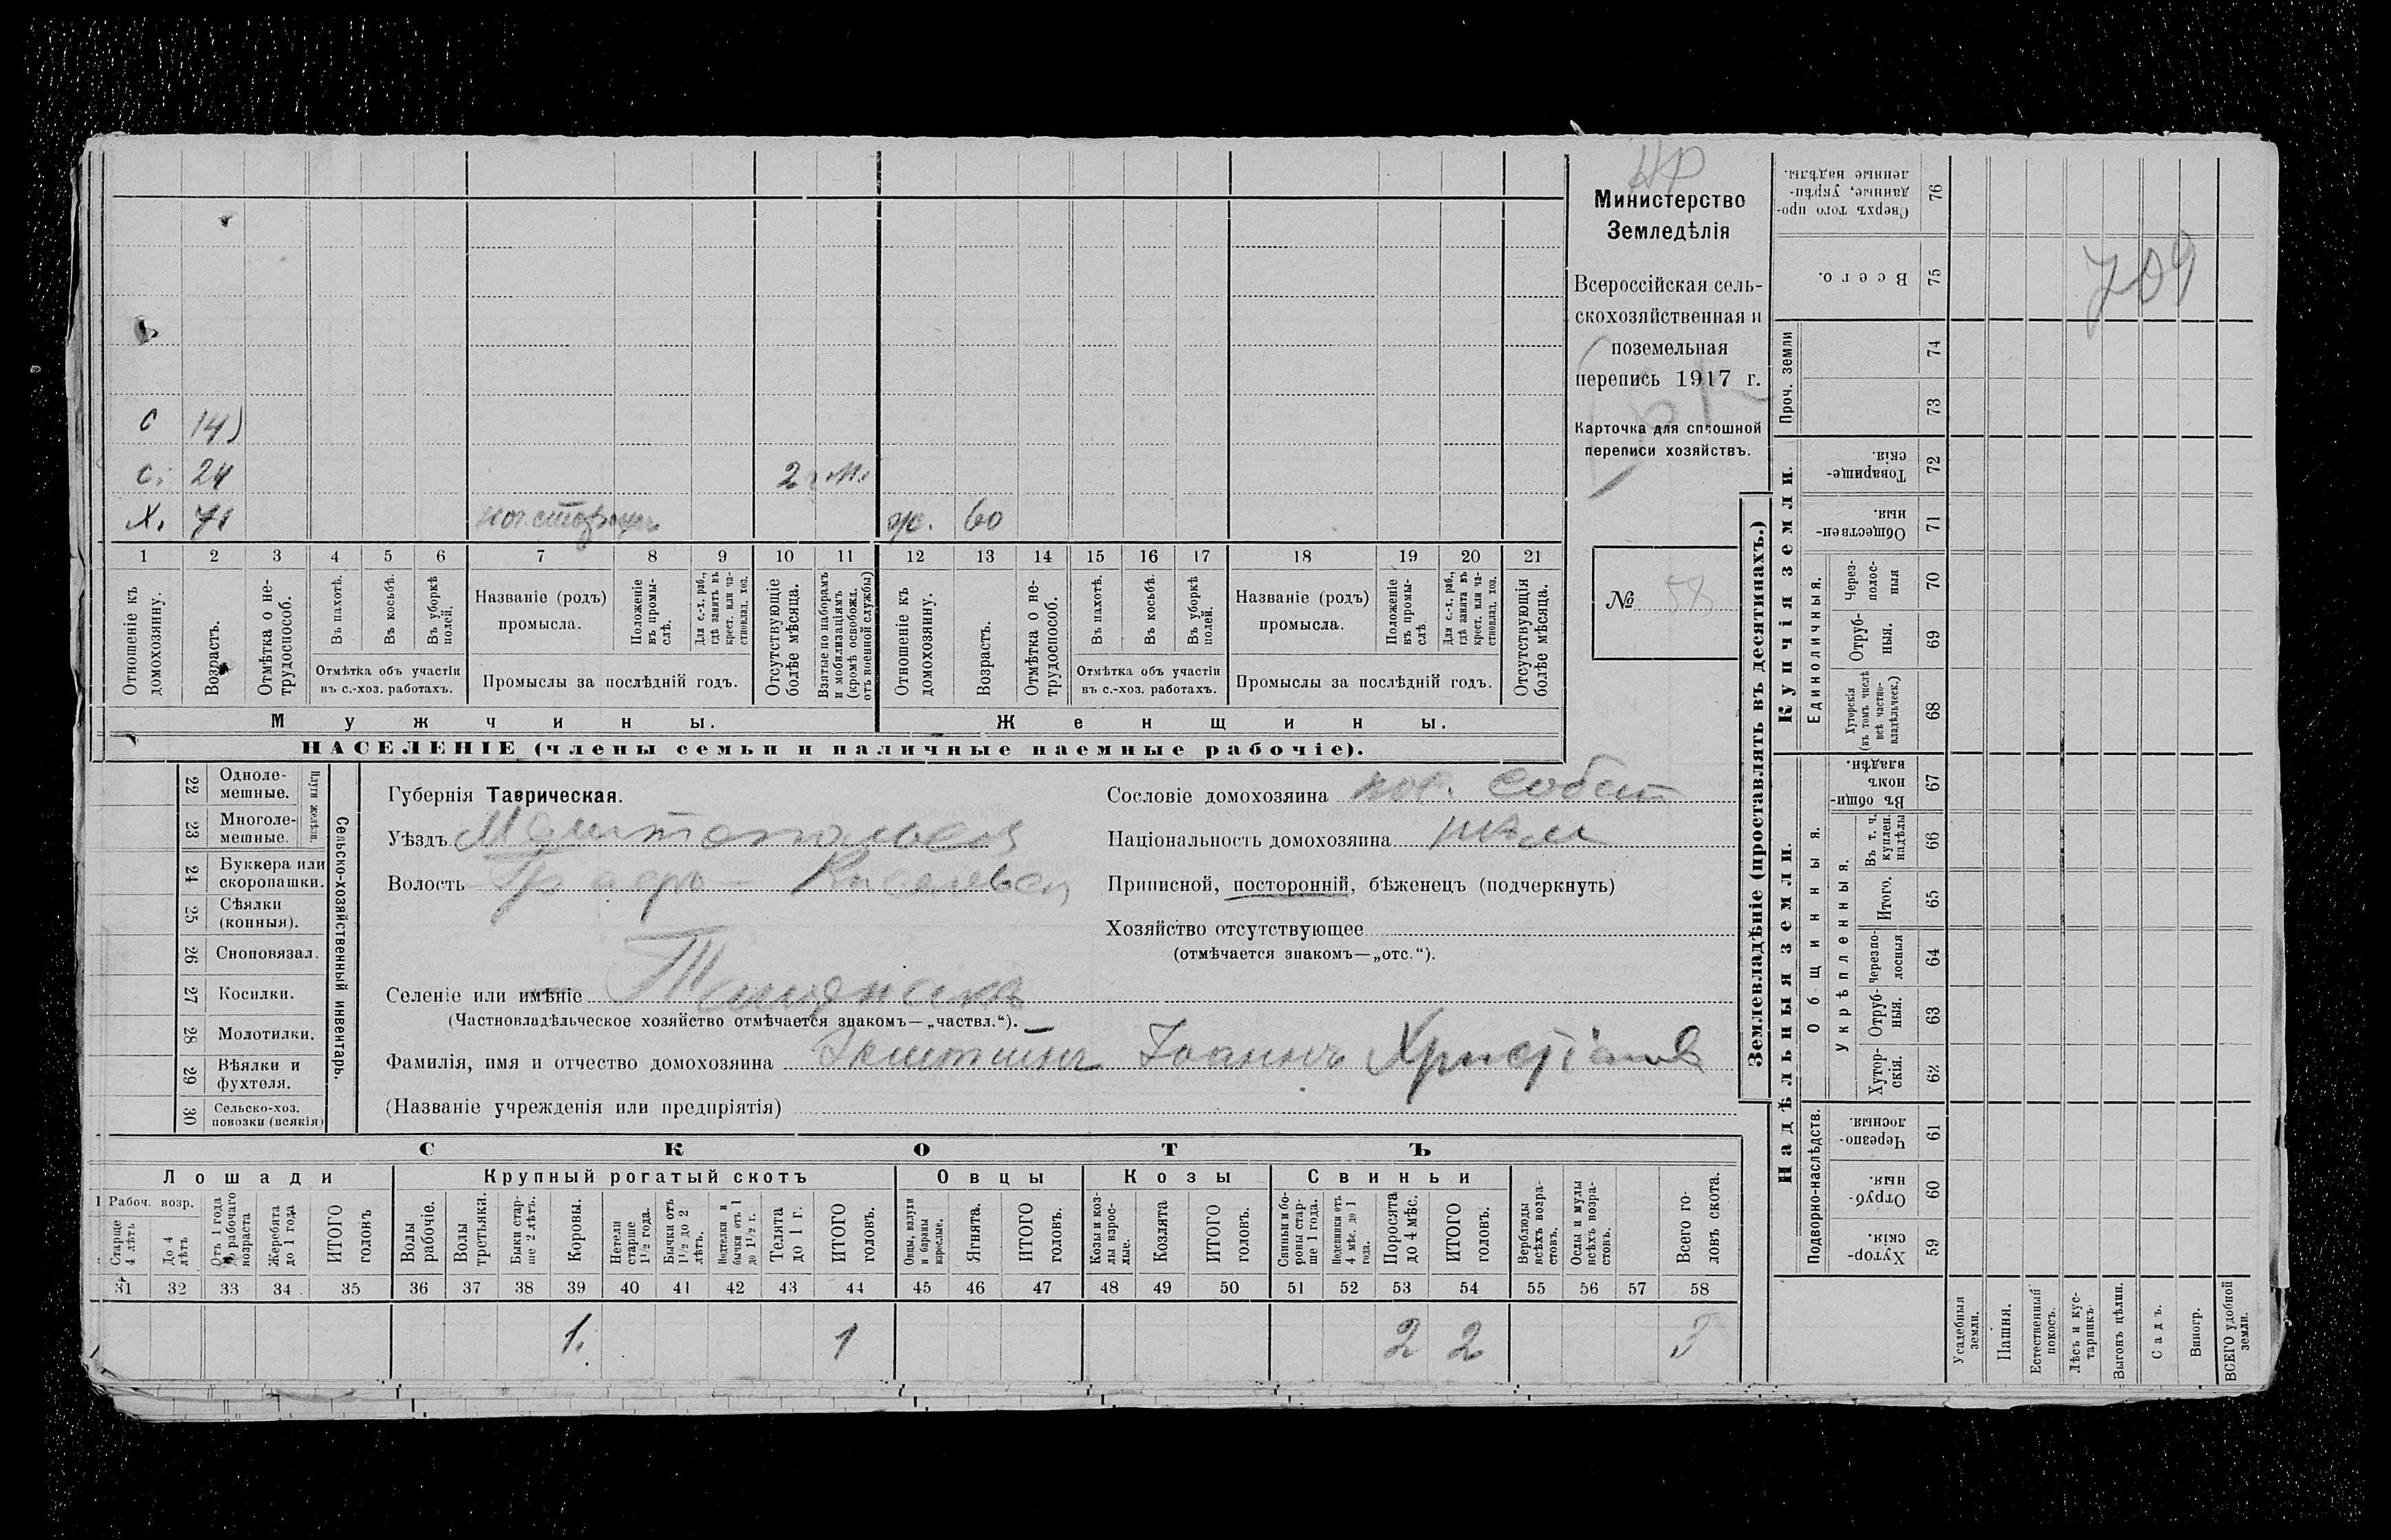 Министерство
Земледѣлія
Всероссійская сель-
скохозяйственная и
поземельная
перепись 1917 г.
Карточка для сплошной
переписи хозяйствъ.
№ 58
709
с 14
с. 24 2 м.
Х. 71 ж. 60
1 2 3 4 5 6 7 8 9 10 11 12 13 14 15 16 17 18 19 20 21
Отношеніе къ домохозяину.
Возрастъ.
Отмѣтка о не-трудоспособ.
Въ пахотѣ.
Въ косьбѣ.
Въ уборкѣ полей.
Отмѣтка объ участіи
въ с.-хоз. работахъ.
Названіе (родъ)
промысла.
Положеніе въ промы-слѣ.
Для с.-х. раб., гдѣ занятъ въ крест. или ча-стновлад. хоз.
Промыслы за послѣдній годъ.
Отсутствующіе болѣе мѣсяца.
Взятые по наборамъ и мобилизаціямъ (кромѣ освобожд. отъ военной службы)
Отношеніе къ домохозяину.
Возрастъ.
Отмѣтка о не-трудоспособ.
Въ пахотѣ.
Въ косьбѣ.
Въ уборкѣ полей.
Отмѣтка объ участіи
въ с.-хоз. работахъ.
Названіе (родъ)
промысла.
Положеніе въ промы-слѣ
Для с.-х. раб., гдѣ занята въ крест. или ча-стновлад. хоз.
Промыслы за послѣдній годъ.
Отсутствующія болѣе мѣсяца.
Мужчины.
Женщины.
НАСЕЛЕНІЕ (члены семьи и наличные наемные рабочіе).
Сельско-хозяйственный инвентарь.
22 Одноле-мешные.
23 Многоле-мешные.
24 Буккера или скоропашки.
25 Сѣялки (конныя).
26 Сноповязал.
27 Косилки.
28 Молотилки.
29 Вѣялки и фухтеля.
30 Сельско-хоз. повозки (всякія)
Губернія Таврическая.
Уѣздъ
Волость
Селеніе или имѣніе
(Частновладѣльческое хозяйство отмѣчается знакомъ—„частвл.“).
Фамилія, имя и отчество домохозяина Эпштинъ Іоаннъ Христіановъ
(Названіе учрежденія или предпріятія)
Сословіе домохозяина пос. собст
Національность домохозяина
Приписной, посторонній, бѣженецъ (подчеркнуть)
Хозяйство отсутствующее
(отмѣчается знакомъ—„отс.“).
СКОТЪ
Лошади
Крупный рогатый скотъ
Овцы
Козы
Свиньи
Рабоч. возр.
Старше 4 лѣтъ
До 4 лѣтъ
Отъ 1 года до рабочаго возраста
Жеребята до 1 года
ИТОГО головъ
Волы рабочіе.
Волы третьяки.
Быки стар-ше 2 лѣтъ.
Коровы.
Нетели старше 1 1/2 года.
Бычки отъ 1 1/2 до 2 лѣтъ.
Подтелки и бычки отъ 1 до 1 1/2 г.
Телята до 1 г.
ИТОГО головъ.
Овцы, валухи и бараны взрослые.
Ягнята.
ИТОГО головъ.
Козы и коз-лы взрос-лые.
Козлята
ИТОГО головъ.
Свиньи и бо-ровы стар-ше 1 года.
Подсвинки отъ 4 мѣс. до 1 года.
Поросята до 4 мѣс.
ИТОГО головъ.
Верблюды всѣхъ возра-стовъ.
Ослы и мулы всѣхъ возра-стовъ.
Всего го-ловъ скота.
31 32 33 34 35 36 37 38 39 40 41 42 43 44 45 46 47 48 49 50 51 52 53 54 55 56 57 58
1. 1 2 2 3
Землевладѣніе (проставлять въ десятинахъ.)
Купчія земли.
Надѣльныя земли.
Сверхъ того про-данные, укрѣп-ленные надѣлы. 76
Всего. 75
Проч. земли 74
73
Товарище-скія. 72
Обществен-ныя. 71
Единоличныя.
Через-полос-ныя 70
Отруб-ныя. 69
Хуторскія (въ томъ числѣ всѣ частно-владѣльческ.) 68
Общинныя.
Въ общи-номъ владѣн. 67
Укрѣпленныя.
Въ т. ч. куплен. надѣлы 66
Итого. 65
Черезпо-лосныя 64
Отруб-ныя. 63
Хутор-скія. 62
Подворно-наслѣдств.
Черезпо-лосныя. 61
Отруб-ныя. 60
Хутор-скія. 59
Усадебныя земли.
Пашня.
Естественный покосъ.
Лѣсъ и кус-тарникъ.
Выгонъ цѣлин.
Садъ.
Виногр.
ВСЕГО удобной земли.